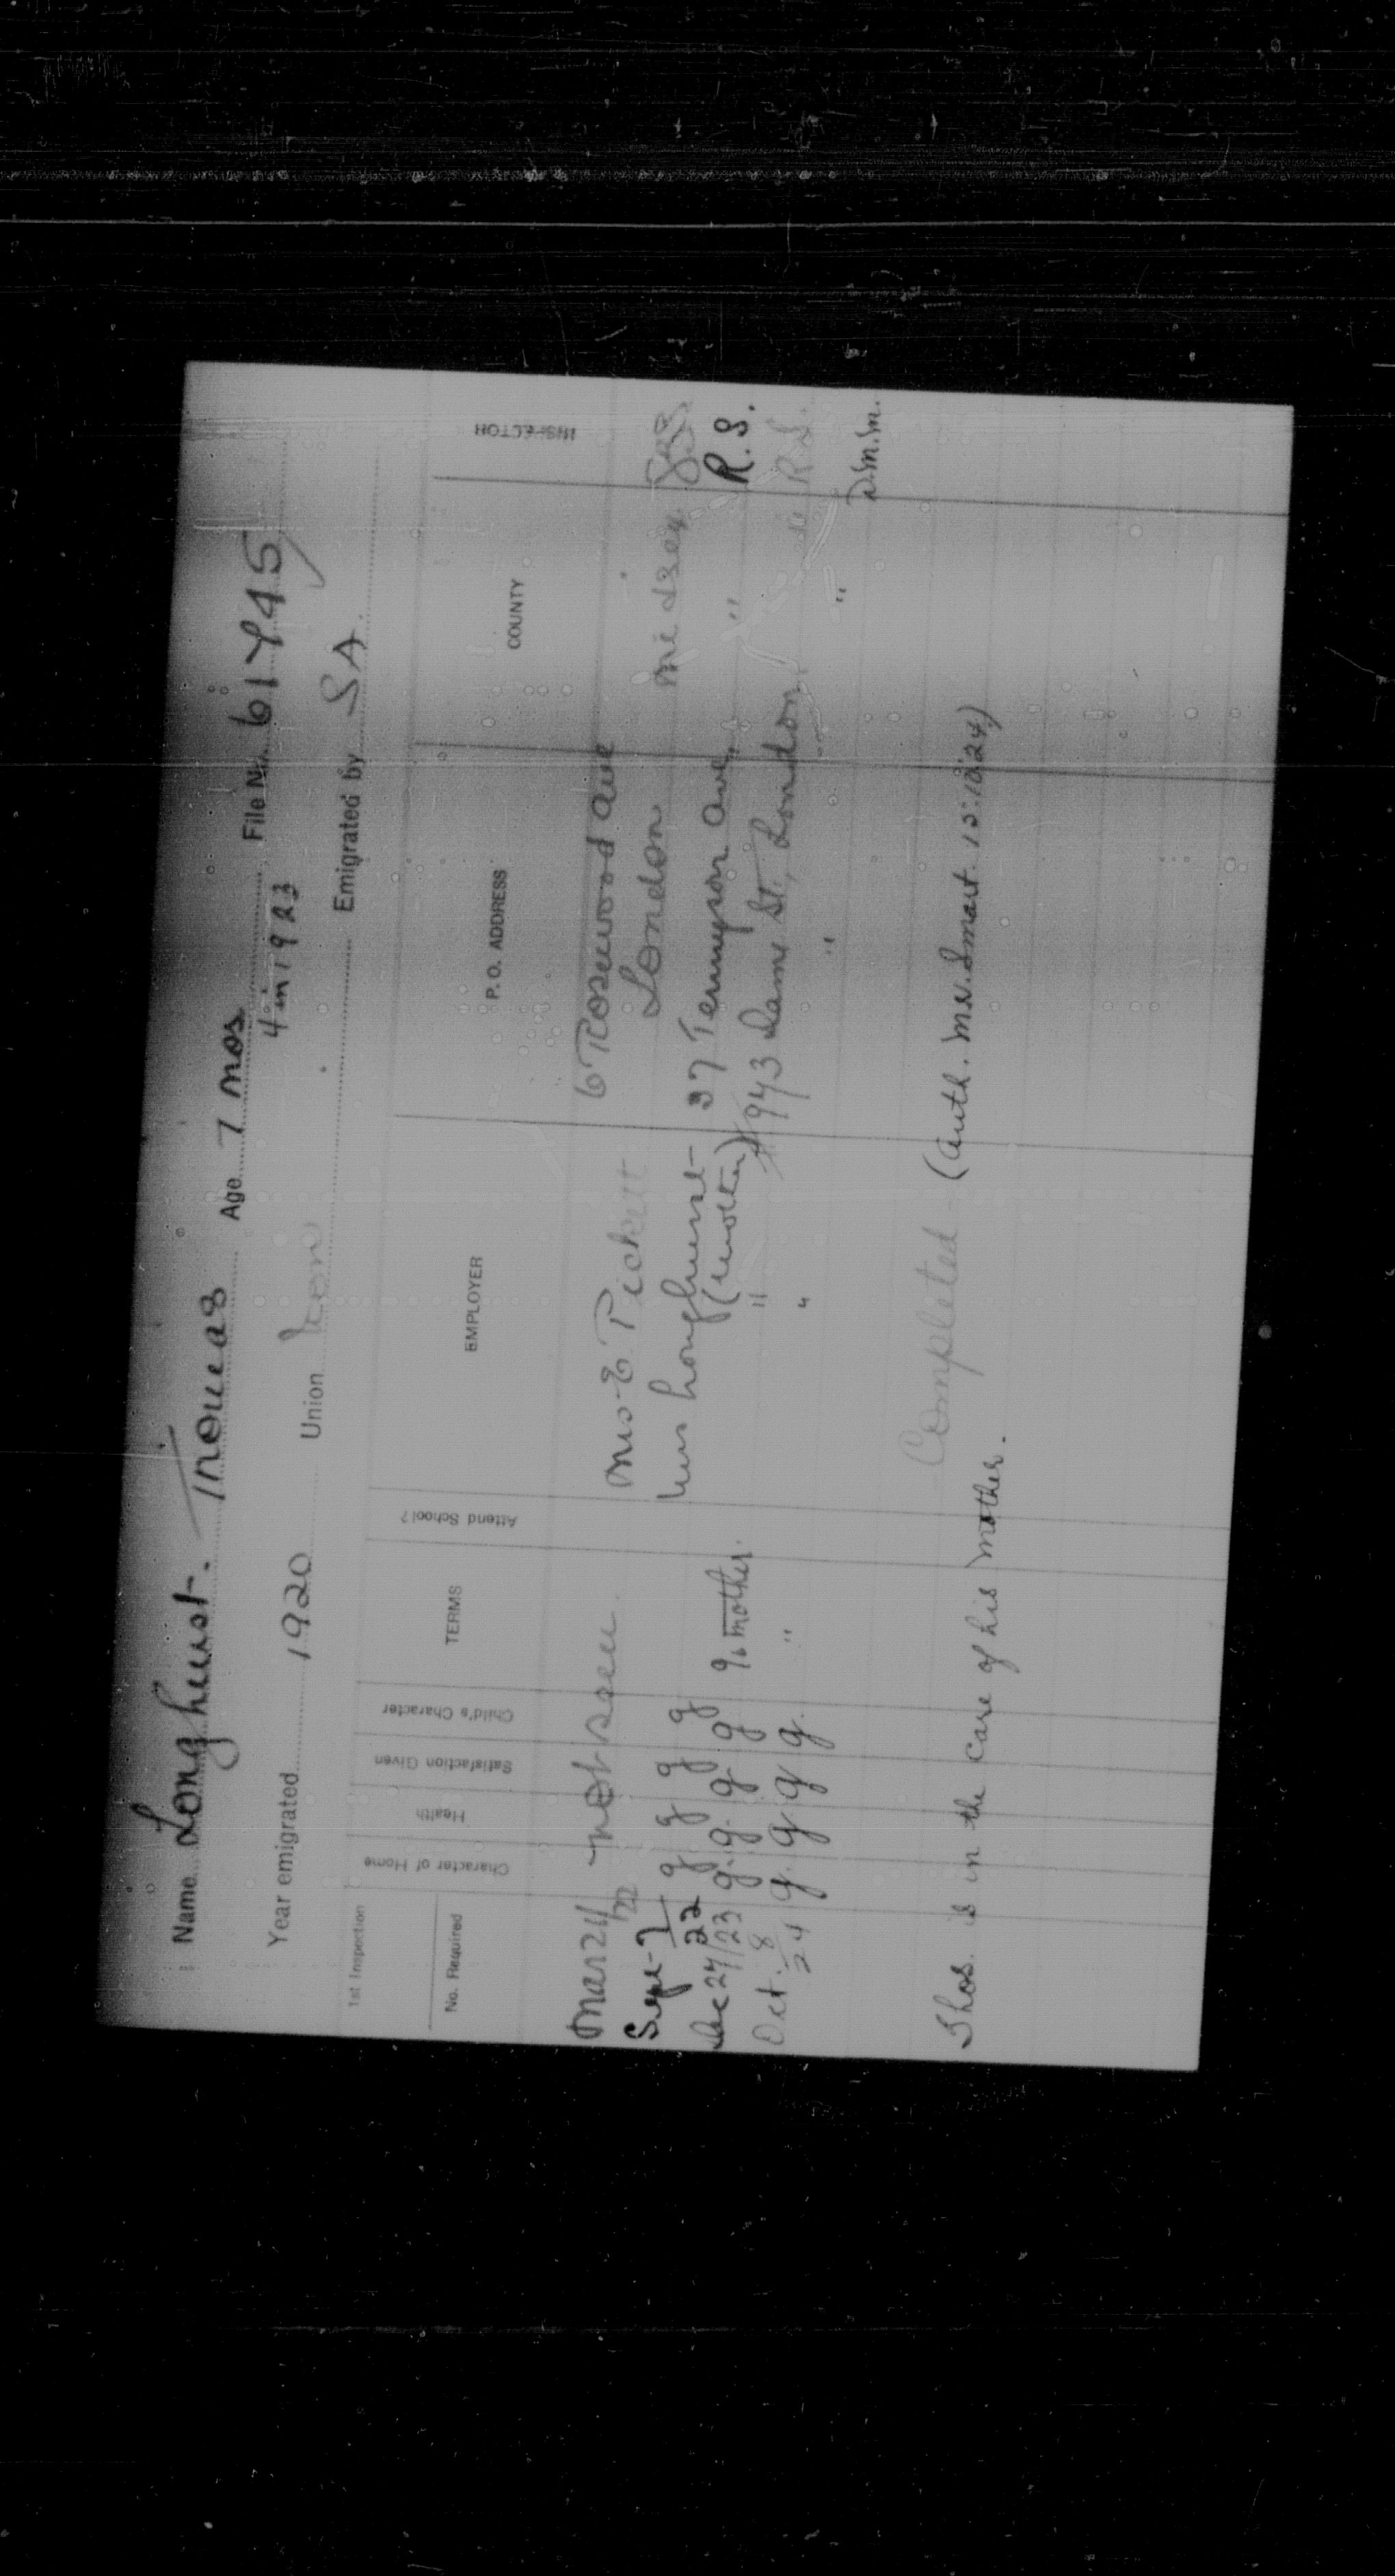 Name Longhurst. Thomas Age 7 mos File No. 61
4 in 1923
Year emigrated 1920 Union Non Emigrated by S A.
1st Inspection
No. Required
Character of Home
Health
Satisfaction Given
Child's Character
TERMS
Attend School?
EMPLOYER
P. O. ADDRESS
COUNTY
INSPECTOR
Mar 24/22 not seen. Mrs E. Pickett 6 Rosewood Ave
London Midsex
Sept-7 22 g g g g Mrs Longhurst- 37 Tennyson Ave. " R. S.
(mother)
Dec 27/23 g. g. g g % mother. " 943 Dame St., London R.S.
Oct. 8 24 g. g g g. " " " " D.M.M.
Completed - (Auth. Mr. Smart. 15.10.24)
Thos. is in the care of his mother.